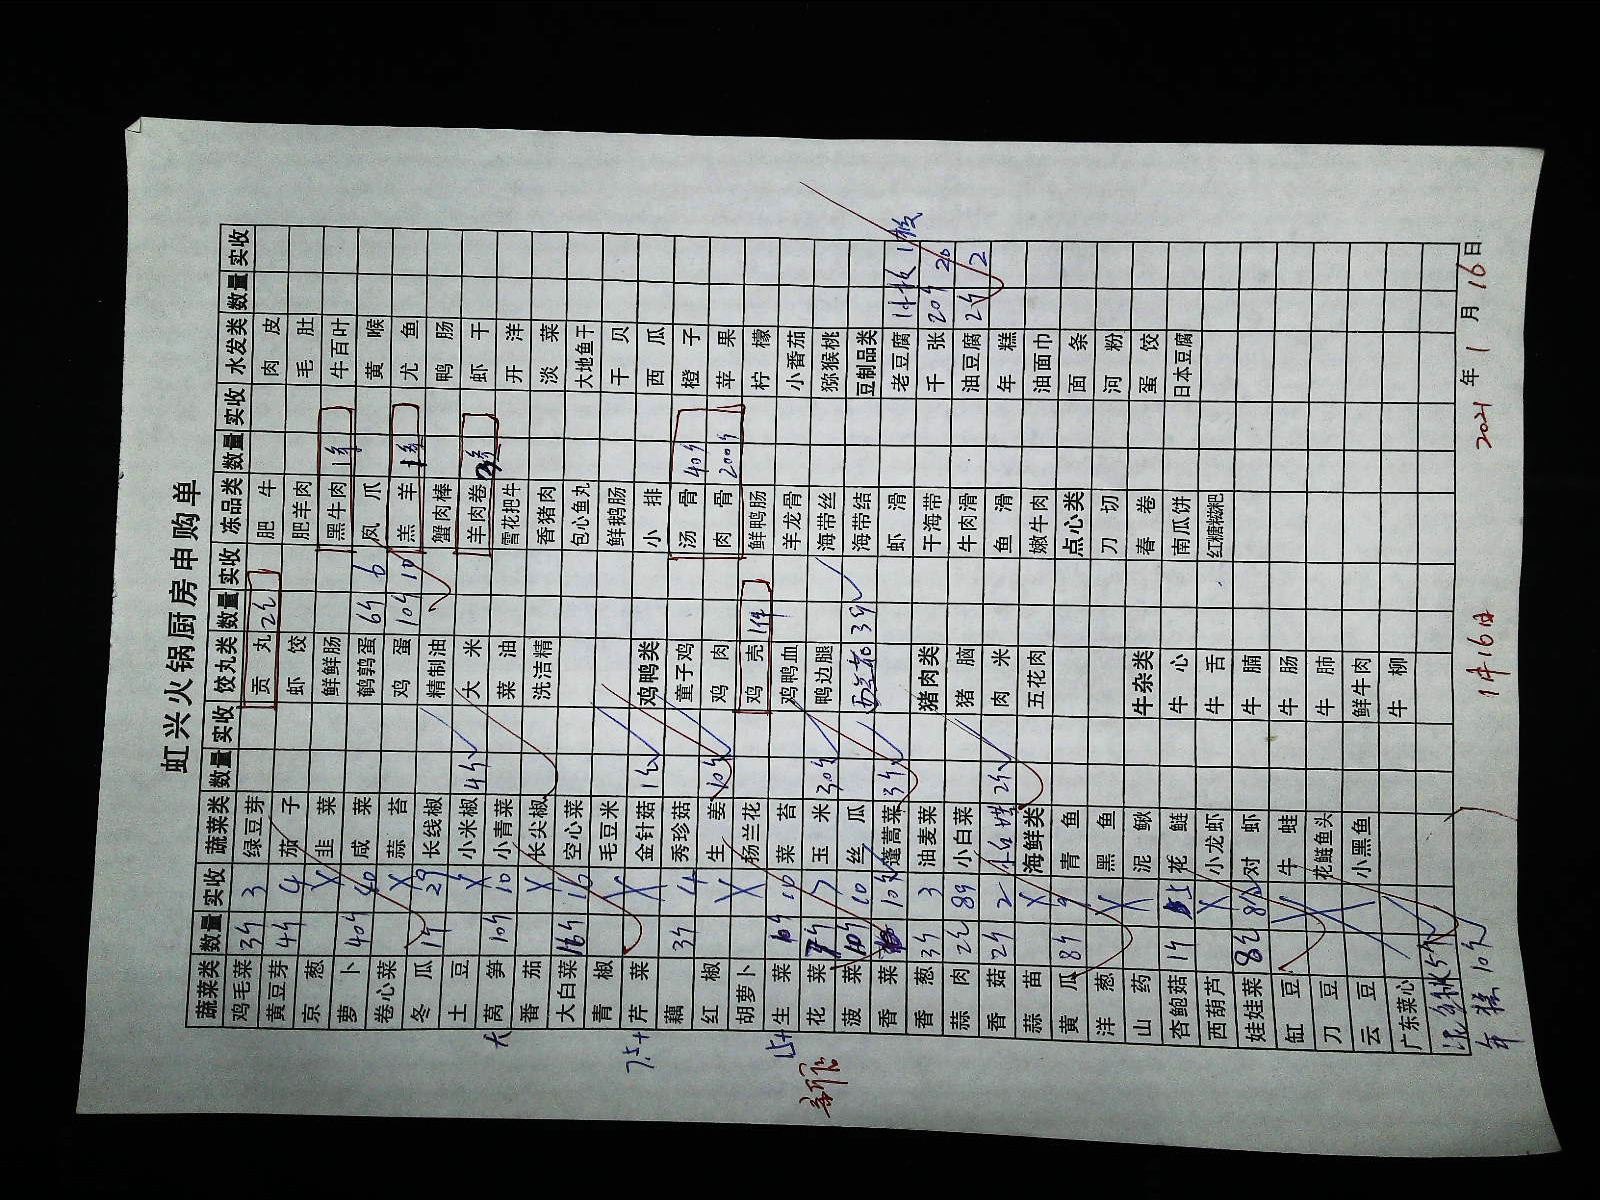 虹兴火锅厨房申购单
蔬菜类 数量 实收 蔬菜类 数量 实收 饺丸类 数量 实收 冻品类 数量 实收 水发类 数量 实收
鸡毛菜 3 3 绿豆芽 贡丸 2 肥牛 肉皮
黄豆芽 4 4 茄子 虾饺 肥羊肉 毛肚
京葱 X 韭菜 鲜鲜肠 黑牛肉 1 牛百叶
萝卜 40 40 咸菜 鹌鹑蛋 6 6 凤爪 黄喉
卷心菜 X 蒜苔 鸡蛋 10 10 羔羊 1 尤鱼
冬瓜 1 29 长线椒 精制油 蟹肉棒 鸭肠
土豆 X 小米椒 4 大米 羊肉卷 虾干
大 莴笋 10 10 小青菜 菜油 雪花把牛 开洋
番茄 X 长尖椒 洗洁精 香猪肉 淡菜
大白菜 16 16 空心菜 包心鱼丸 大地鱼干
青椒 毛豆米 鲜鹅肠 干贝
7.5+ 芹菜 X 金针菇 1 鸡鸭类 小排 西瓜
藕 3 4 秀珍菇 童子鸡 汤骨 40 橙子
红椒 X 生姜 10 鸡肉 肉骨 200 苹果
胡萝卜 杨兰花 鸡壳 1件 鲜鸭肠 柠檬
15+ 生菜 10 菜苔 鸡鸭血 羊龙骨 小番茄
花菜 7 7 玉米 30 鸭边腿 海带丝 猕猴桃
菠菜 10 10 丝瓜 3 海带结 豆制品类
香菜 10 蓬蒿菜 3 虾滑 老豆腐 1板 1板
香葱 3 3 油麦菜 猪肉类 干海带 千张 20 20
蒜肉 2 89 小白菜 猪脑 牛肉滑 油豆腐 2 2
香菇 2 2 2 肉米 鱼滑 年糕
蒜苗 X 海鲜类 五花肉 嫩牛肉 油面巾
黄瓜 8 青鱼 点心类 面条
洋葱 X 黑鱼 刀切 河粉
山药 X 泥鳅 牛杂类 春卷 蛋饺
杏鲍菇 1 花鲢 牛心 南瓜饼 日本豆腐
西胡芦 X 小龙虾 牛舌 红糖糍粑
娃娃菜 8 对虾 牛腩
缸豆 牛蛙 牛肠
刀豆 花鲢鱼头 牛肺
云豆 小黑鱼 鲜牛肉
广东菜心 牛柳
年糕 10
1月16日
2021年1月16日